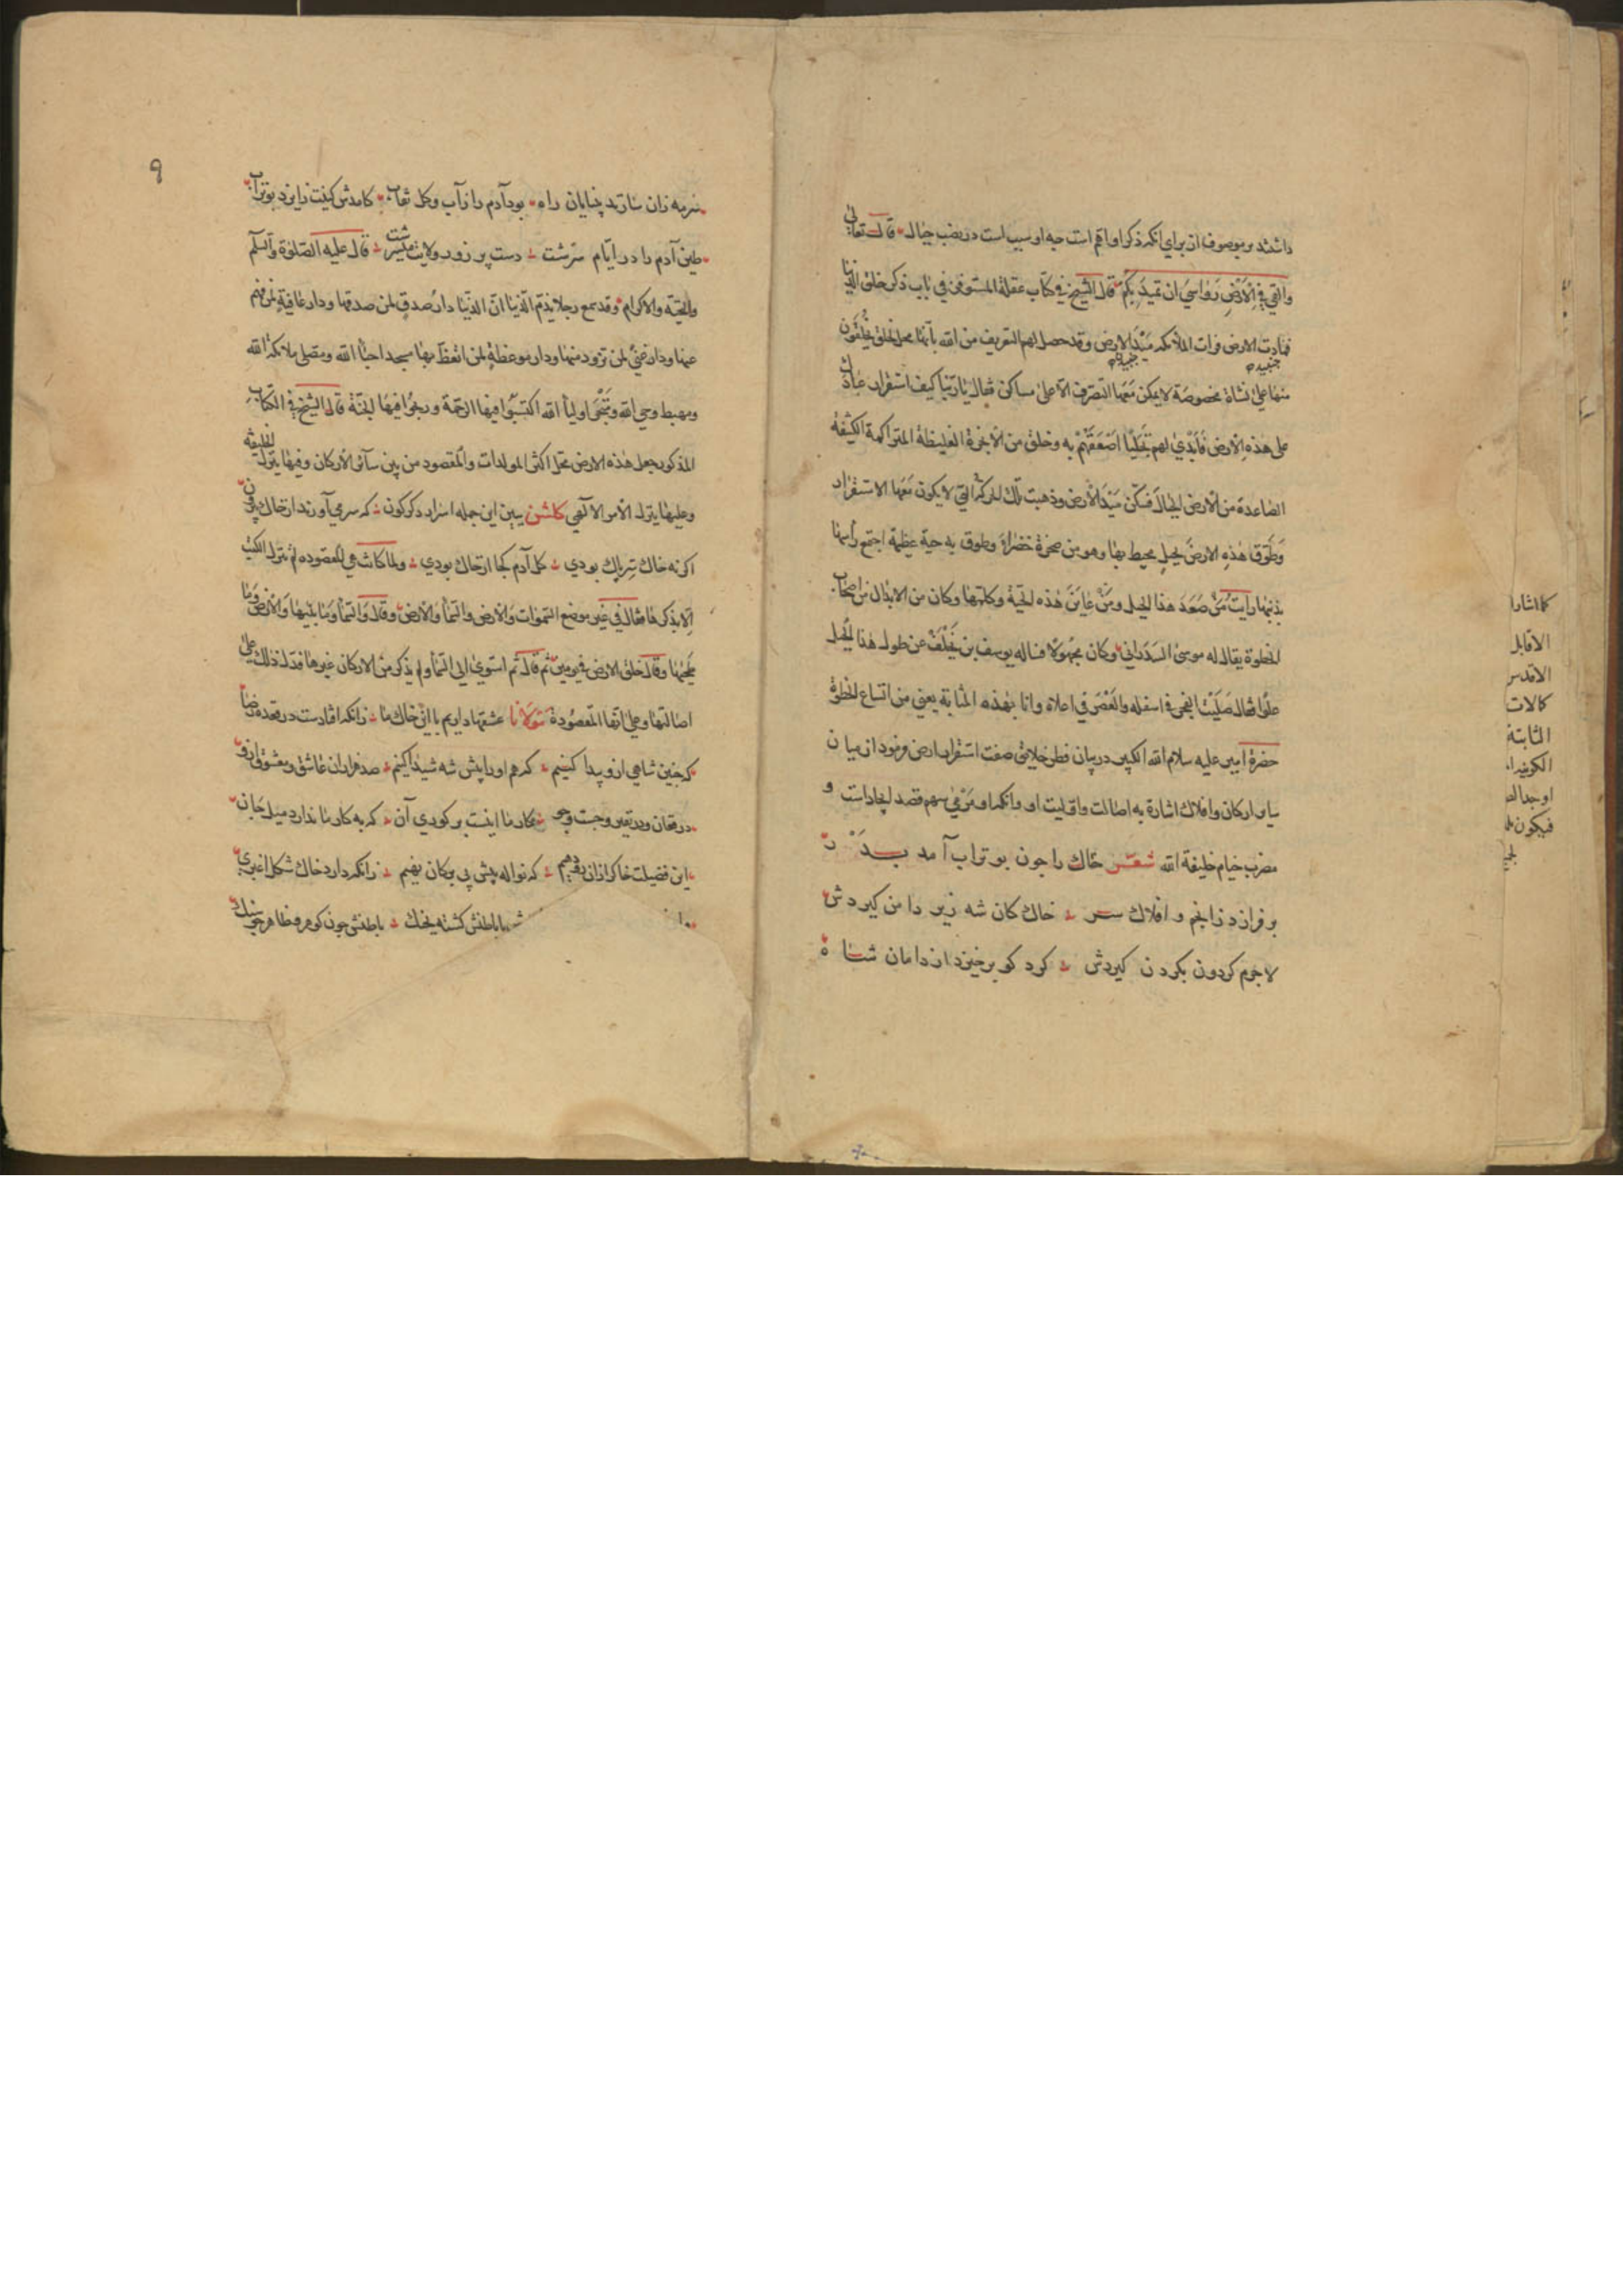 داشتند بر موصوف از براي آنكه ذكر او اهم است چه او سبب است در نصب جبال قال تعالي
والقي في الارض رواسي ان تميد بكم قال الشيخ في كتاب عقلة المستوفز في باب ذكر خلق الدنيا
فمادت الارض فرات الملائكه ميد الارض وقد حصل لهم التعريف من الله بانها محل لخلق يخلقون
منها علي نشاة مخصوصة لا يمكن معها التصرف الا علي ساكن فقال يا ربنا كيف استقرار عبادك
علي هذه الارض فابدي لهم تجليا اصعقهم به وخلق من الابخرة الغليظة المتراكمة الكثيفة
الصاعدة من الارض الجبال فسكن ميد الارض وذهبت تلك الحركة التي لا يكون معها الاستقرار
وطوق هذه الارض بجبل محيط بها وهو من صخرة خضراء وطوق به حية عظيمة اجتمع راسها
بذنبها رايت من صعد هذا الجبل ومن عاين هذه الحية وكلمها وكان من الابدال من اصحاب
الخطوة يقال له موسي السدراني وكان مجهولا فساله يوسف بن يخلف عن طول هذا الجبل
علوا فقال صليت الفجر في اسفله والعصر في اعلاه وانا بهذه المثابة يعني من اتساع الخطوة
حضرة امير عليه سلام الله الكبير در بيان فطر خلايق صفت استقرار ارض فرمود از ميان
ساير اركان وافلاك اشارة به اصالت واوليت او وانكه او مرمي سهم قصد ايجاد است و
مضرب خيام خليفة الله شعر خاك را چون بو تراب آمد پدر
بر فرازد ز انجم و افلاك سر خاك كان شه زير دامن گيردش
لاجرم گردون بگردن گيردش گرد كو برخيزد از دامان شاه
٩
سرمه زان سازند بينايان راه بود آدم را ز آب وگل نقاب كامدش كنيت ز ايزد بوتراب
طين آدم را در ايام سرشت دست پر زور ولايت قال عليه الصلوة والسلم
والتحية والاكرام وقد سمع رجلا يذم الدنيا ان الدنيا دار صدق لمن صدقها ودار عافية لمن فهم
عنها ودار غني لمن تزود منها ودار موعظة لمن اتعظ بها مسجد احباء الله ومصلي ملائكة الله
ومهبط وحي الله ومتجر اوليا الله اكتسبوا فيها الرحمة وربحوا فيها الجنة قال الشيخ في الكتاب
المذكور جعل هذه الارض محل اكثر المولدات والمقصود من بين سائر الاركان وفيها ينزل الخليفه
وعليها ينزل الامر الالهي گلشن ببين اين جمله اسرار دگرگون كه سر مي آورند از خاك بيرون
اگر نه خاك بودي گل آدم كجا از خاك بودي ولما كانت هي المقصوده لم تنزل الكتب
الا بذكرها فقال في غير موضع السموات والارض والسماء والارض وقال والسماء وما بنيها والارض وما
طحيها وقال خلق الارض في يومين ثم قال ثم استوي الي السماء ولم يذكر من الاركان غيرها فدل ذلك علي
اصالتها وعلي انها المقصودة مولانا عشقها داريم با اين خاك ما زانكه افتادست در قعده رضا
گه چنين شاهي ازو پيدا كنيم گه هم او را پيش شه شيدا كنيم صد هزاران عاشق ومعشوق ازو
در فغان ودر نفير وجست وجو كار ما اينست بر كوري آن كه به كار ما ندارد ميل جان
اين فضيلت خاك را زان رو دهيم كه نواله پيش بي برگان نهيم زانكه دارد خاك شكل اغبري
باطنش گشته بجنگ باطنش چون گوهر وظاهر چو سنگ
كما اشار
الاقابل
الاقدس
كالات
الثابتة